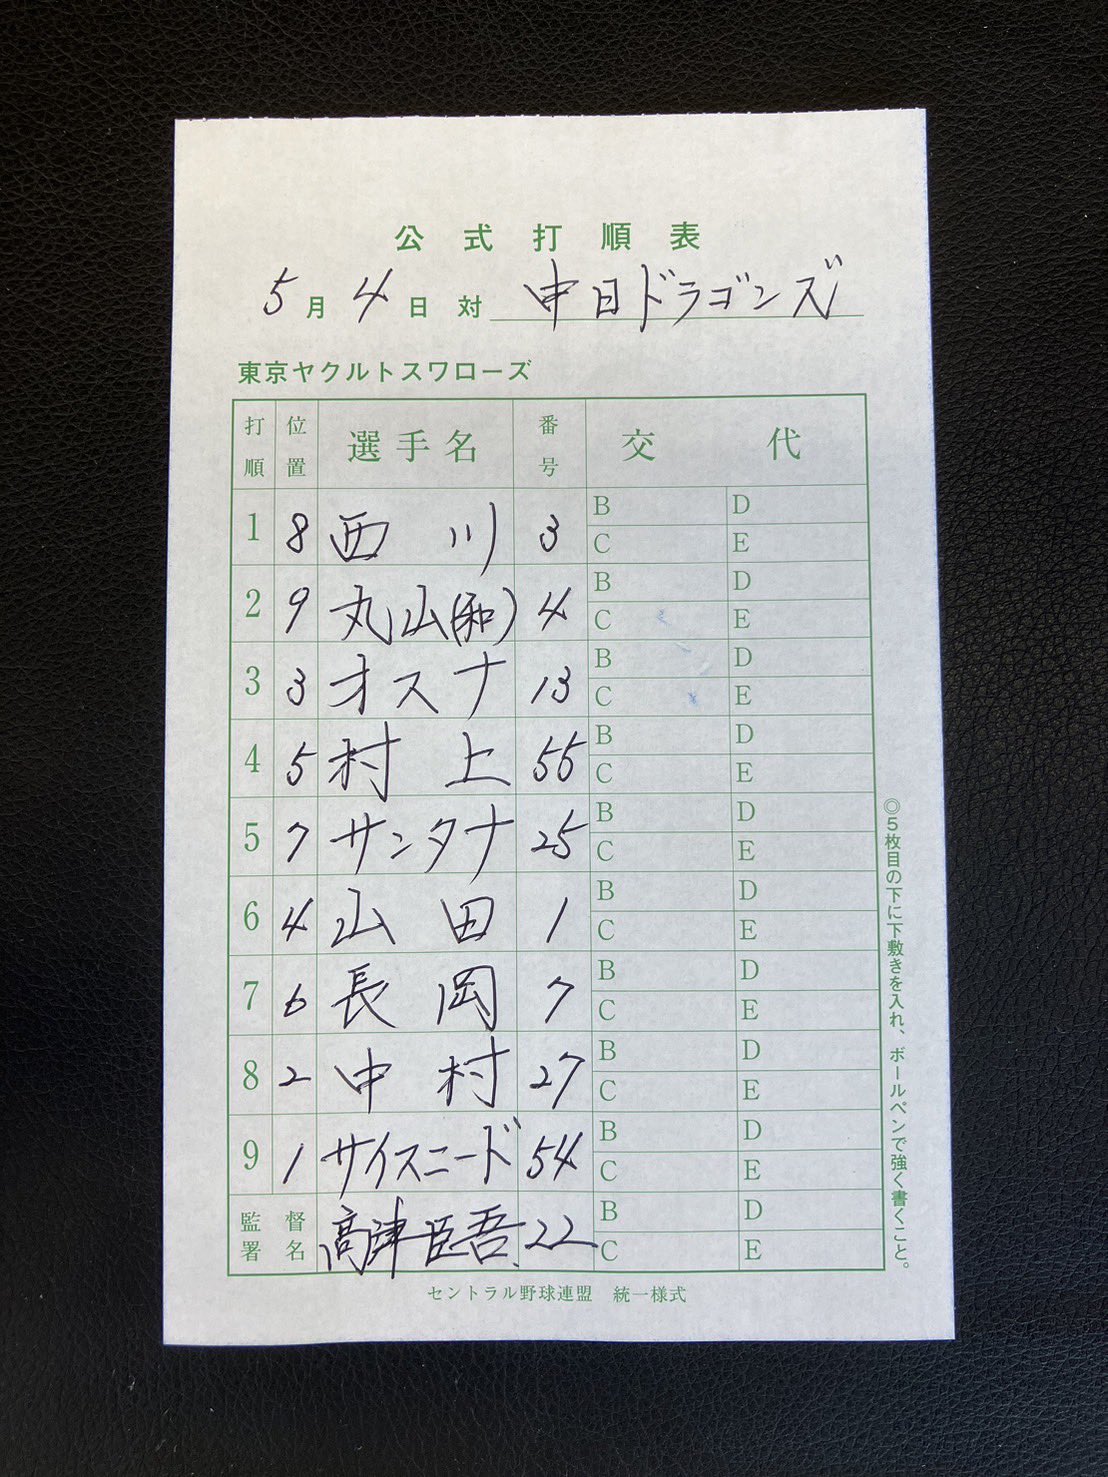 公式打順表
5月4日 対 中日ドラゴンズ
東京ヤクルトスワローズ
打順 位置 選手名 番号 交代
1 8 西川 3 B D C E
2 9 丸山(和) 4 B D C E
3 3 オスナ 13 B D C E
4 5 村上 55 B D C E
5 7 サンタナ 25 B D C E
6 4 山田 1 B D C E
7 6 長岡 7 B D C E
8 2 中村 27 B D C E
9 1 サイスニード 54 B D C E
監督署名 高津臣吾 22 B D C E
セントラル野球連盟 統一様式
◎5枚目の下に下敷きを入れ、ボールペンで強く書くこと。